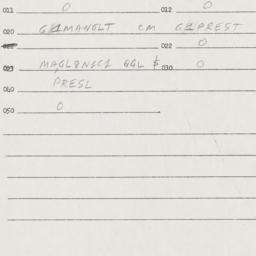 011 0 012 0
020 G21MANGLT CM G21PREST
022 0
023 MAGL2NSC1 QGL $ 030 0
040 PRESL
050 0